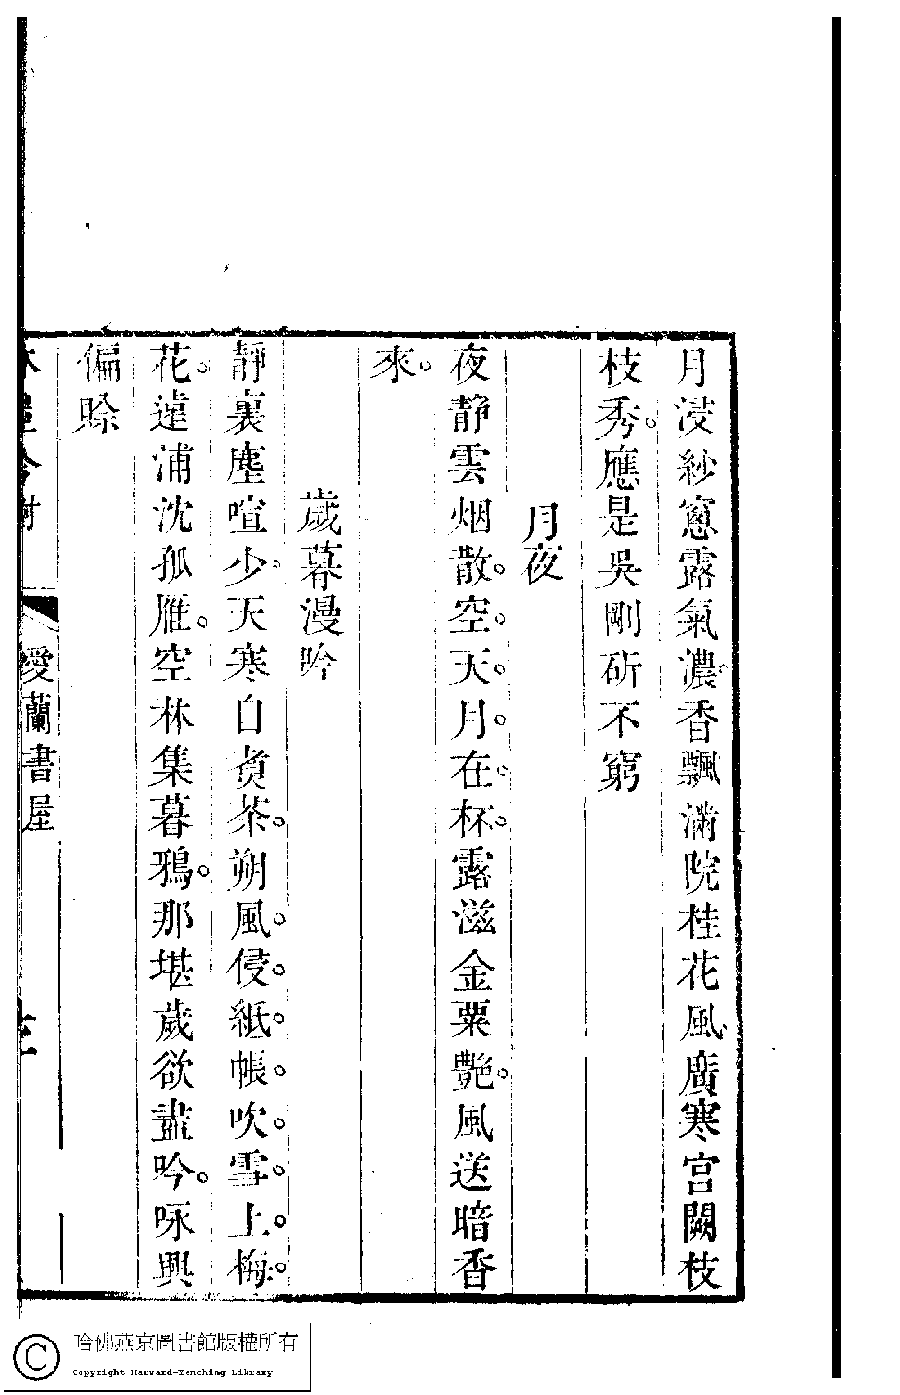 月浸紗窻露氣濃香飄滿院桂花風廣寒宮闕枝
枝秀。應是吳剛斫不窮
月夜
夜静雲烟散。空。天。月。在。杯。露滋金粟艷。風送暗香
來。
歲暮漫吟
靜裏塵喧少。天寒自煑茶。朔風。侵。紙。帳。吹。雪。上。梅。
花。遠浦沈孤雁。空林集暮鴉。那堪歲欲盡吟。咏興
偏賒
愛蘭書屋
哈佛燕京圖書館版權所有
Copyright Harvard-Yenching Library